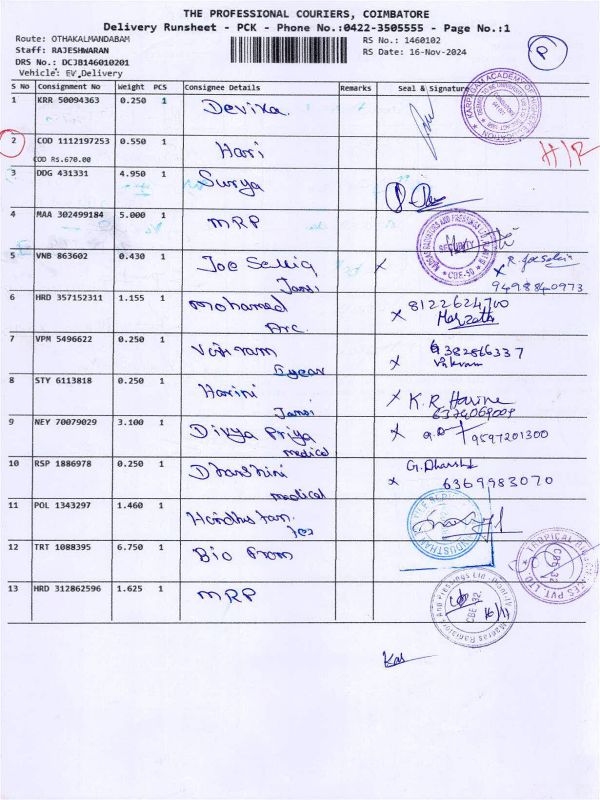 THE PROFESSIONAL COURIERS, COIMBATORE
Delivery Runsheet - PCK - Phone No.:0422-3505555 - Page No.:1
Route: OTHAKALMANDABAM
RS No.: 1460102
Staff: RAJESHWARAN
RS Date: 16-Nov-2024
DRS No.: DCJB146010201
Vehicle: EV Delivery
P
S No Consignment No Weight PCS Consignee Details Remarks Seal & Signature
1 KRR 50094363 0.250 1 Devika
2 COD 1112197253 0.550 1 Hari
COD RS.670.00
3 DDG 431331 4.950 1 Surya
4 MAA 302499184 5.000 1 MRP
SECURITY
CBE-50
5 VNB 863602 0.430 1 Joe
Jansi
9498840973
6 HRD 357152311 1.155 1 Mohamed
Arc.
8122624700
7 VPM 5496622 0.250 1 Vikram
Vikram
8 STY 6113818 0.250 1 Harini
Jansi
K.R. Harine
6374069009
9 NEY 70079029 3.100 1 Divya Priya
medical
9597201300
10 RSP 1886978 0.250 1 Dharshini
medical
G. Dharshi
6369983070
11 POL 1343297 1.460 1
12 TRT 1088395 6.750 1 Bio
13 HRD 312862596 1.625 1 MRP
CBE-32
16/11